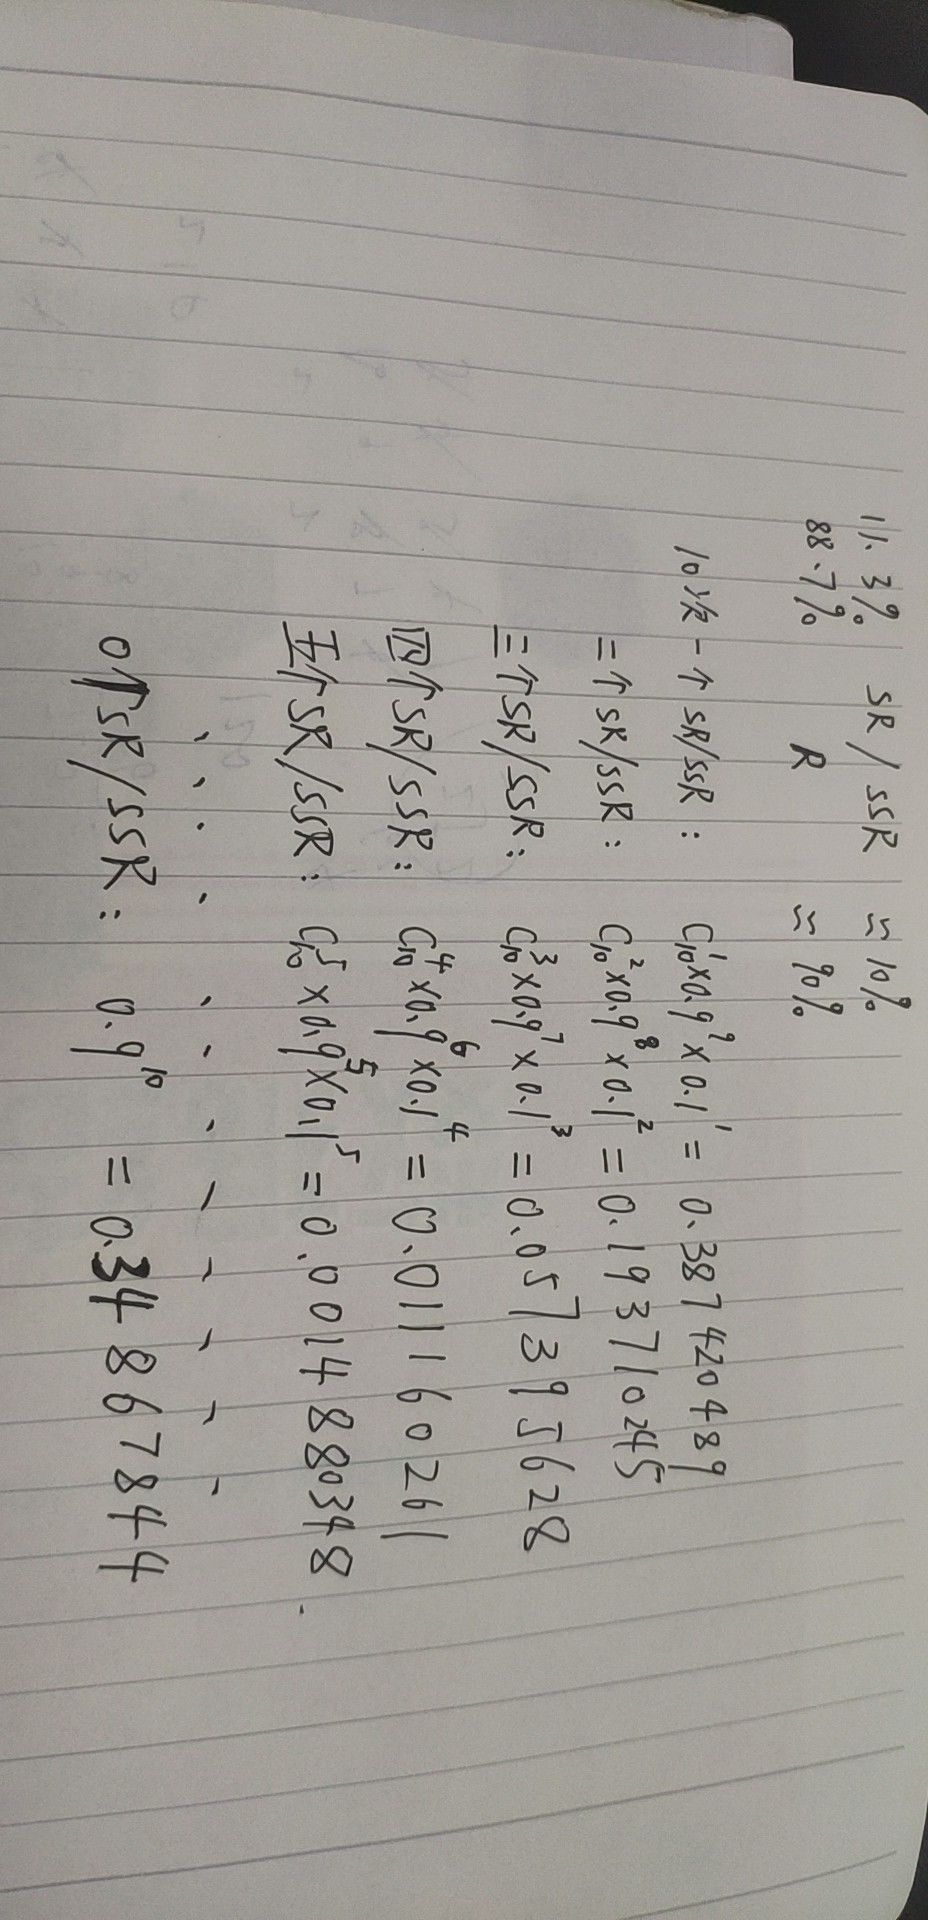 11.3% SR/SSR ≈10%
88.7% R ≈90%
10次一个SR/SSR: C₁₀¹×0.9⁹×0.1¹=0.387420489
二个SR/SSR: C₁₀²×0.9⁸×0.1²=0.193710245
三个SR/SSR: C₁₀³×0.9⁷×0.1³=0.057395628
四个SR/SSR: C₁₀⁴×0.9⁶×0.1⁴=0.011160261
五个SR/SSR: C₁₀⁵×0.9⁵×0.1⁵=0.0014880348.
0个SR/SSR: 0.9¹⁰=0.34867844